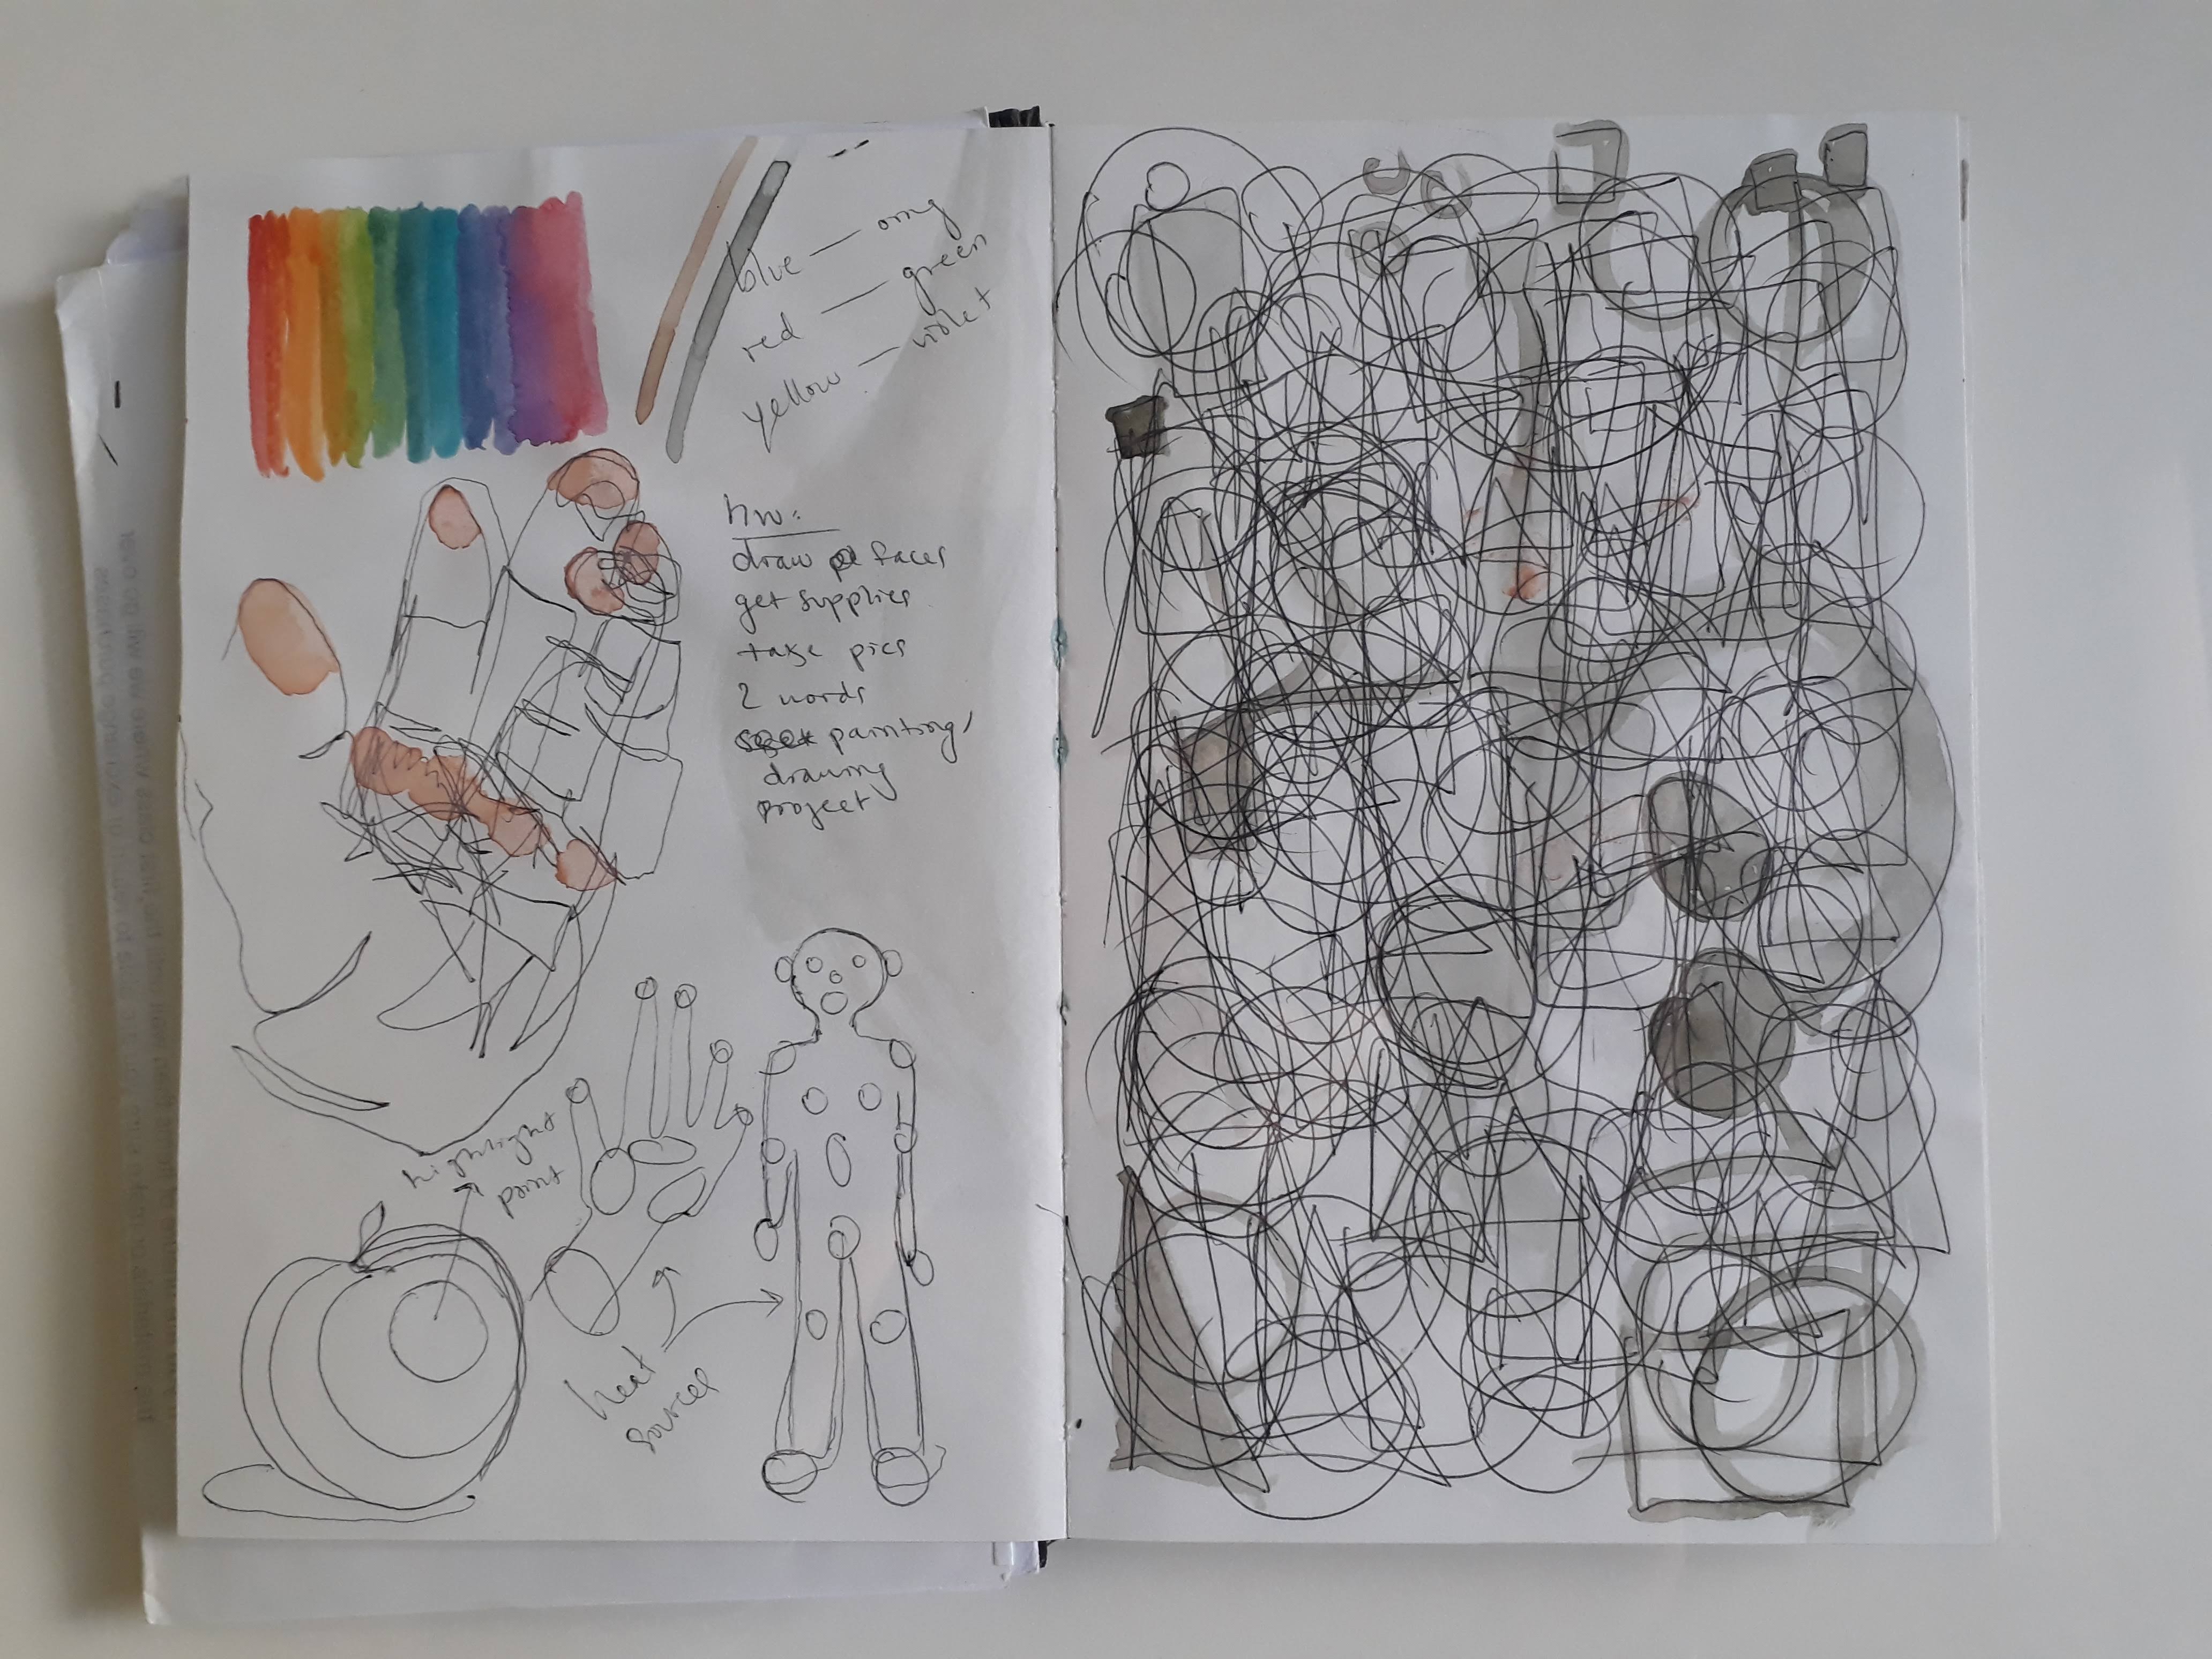 blue — orng
red — green
yellow — violet
hw:
draw faces
get supplies
take pics
2 words
painting/
drawing
project
highlight
point
heat
sources